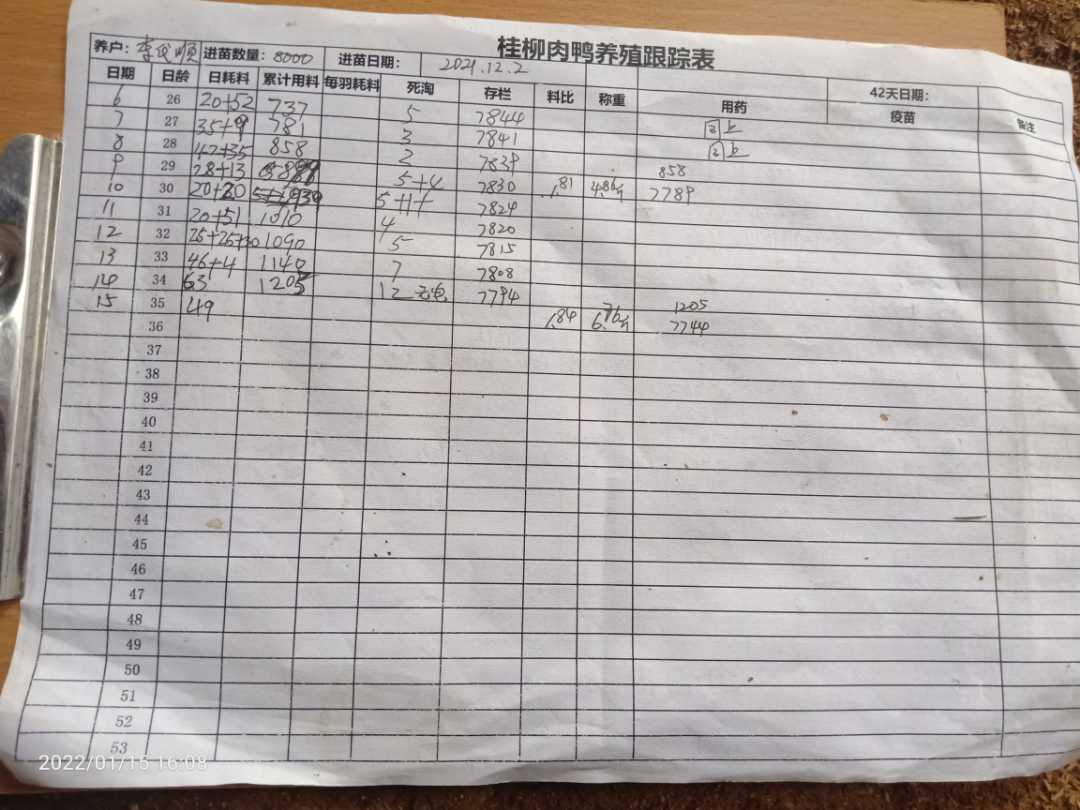 桂柳肉鸭养殖跟踪表
养户: 李 顺 进苗数量: 8000 进苗日期: 2021.12.2 42天日期:
日期 日龄 日耗料 累计用料 每羽耗料 死淘 存栏 料比 称重 用药 疫苗 备注
6 26 20+52 737 5 7844
7 27 35+9 781 3 7841
8 28 42+35 858 2 7839
9 29 28+13 5+4 7830 1.81 4.86斤 858 7789
10 30 20+20 939 7824
11 31 20+51 1010 4 7820
12 32 25+25+30 1090 5 7815
13 33 46+4 1140 7 7808
14 34 65 1205 12 7794
15 35 49 1.84 6.76斤 1205 7744
36
37
38
39
40
41
42
43
44
45
46
47
48
49
50
51
52
53
2022/01/15 16:08